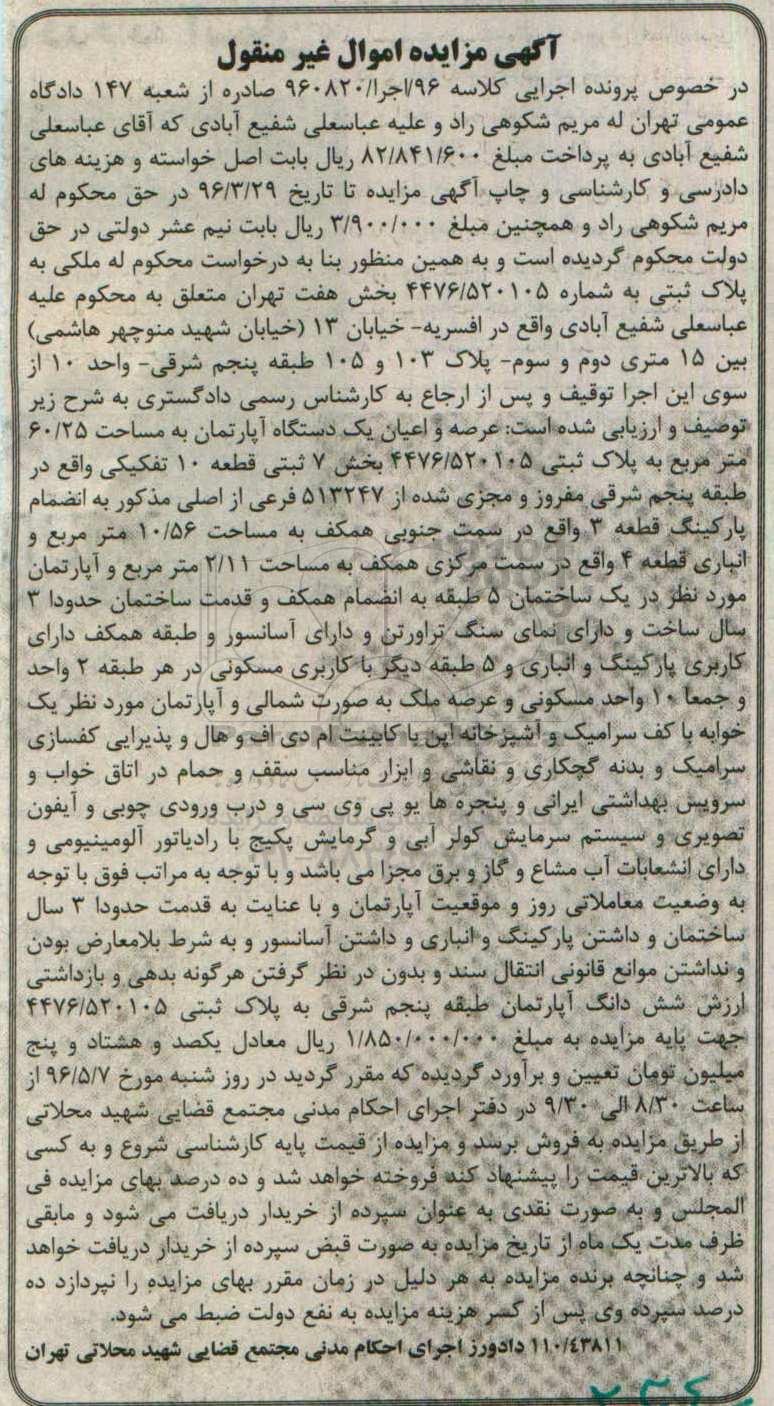 آگهی مزایده اموال غیر منقول
در خصوص پرونده اجرایی کلاسه ۹۶/اجرا/۹۶۰۸۲۰ صادره از شعبه ۱۴۷ دادگاه
عمومی تهران له مریم شکوهی راد و علیه عباسعلی شفیع آبادی که آقای عباسعلی
شفیع آبادی به پرداخت مبلغ ۸۲/۸۴۱/۶۰۰ ریال بابت اصل خواسته و هزینه های
دادرسی و کارشناسی و چاپ آگهی مزایده تا تاریخ ۹۶/۳/۲۹ در حق محکوم له
مریم شکوهی راد و همچنین مبلغ ۳/۹۰۰/۰۰۰ ریال بابت نیم عشر دولتی در حق
دولت محکوم گردیده است و به همین منظور بنا به درخواست محکوم له ملکی به
پلاک ثبتی به شماره ۴۴۷۶/۵۲۰۱۰۵ بخش هفت تهران متعلق به محکوم علیه
عباسعلی شفیع آبادی واقع در افسریه- خیابان ۱۳ (خیابان شهید منوچهر هاشمی)
بین ۱۵ متری دوم و سوم- پلاک ۱۰۳ و ۱۰۵ طبقه پنجم شرقی- واحد ۱۰ از
سوی این اجرا توقیف و پس از ارجاع به کارشناس رسمی دادگستری به شرح زیر
توصیف و ارزیابی شده است: عرصه و اعیان یک دستگاه آپارتمان به مساحت ۶۰/۲۵
متر مربع به پلاک ثبتی ۴۴۷۶/۵۲۰۱۰۵ بخش ۷ ثبتی قطعه ۱۰ تفکیکی واقع در
طبقه پنجم شرقی مفروز و مجزی شده از ۵۱۳۲۴۷ فرعی از اصلی مذکور به انضمام
پارکینگ قطعه ۳ واقع در سمت جنوبی همکف به مساحت ۱۰/۵۶ متر مربع و
انباری قطعه ۴ واقع در سمت مرکزی همکف به مساحت ۲/۱۱ متر مربع و آپارتمان
مورد نظر در یک ساختمان ۵ طبقه به انضمام همکف و قدمت ساختمان حدودا ۳
سال ساخت و دارای نمای سنگ تراورتن و دارای آسانسور و طبقه همکف دارای
کاربری پارکینگ و انباری و ۵ طبقه دیگر با کاربری مسکونی در هر طبقه ۲ واحد
و جمعا ۱۰ واحد مسکونی و عرصه ملک به صورت شمالی و آپارتمان مورد نظر یک
خوابه با کف سرامیک و آشپزخانه اپن با کابینت ام دی اف و هال و پذیرایی کفسازی
سرامیک و بدنه گچکاری و نقاشی و ابزار مناسب سقف و حمام در اتاق خواب و
سرویس بهداشتی ایرانی و پنجره ها یو پی وی سی و درب ورودی چوبی و آیفون
تصویری و سیستم سرمایش کولر آبی و گرمایش پکیج با رادیاتور آلومینیومی و
دارای انشعابات آب مشاع و گاز و برق مجزا می باشد و با توجه به مراتب فوق با توجه
به وضعیت معاملاتی روز و موقعیت آپارتمان و با عنایت به قدمت حدودا ۳ سال
ساختمان و داشتن پارکینگ و انباری و داشتن آسانسور و به شرط بلامعارض بودن
و نداشتن موانع قانونی انتقال سند و بدون در نظر گرفتن هرگونه بدهی و بازداشتی
ارزش شش دانگ آپارتمان طبقه پنجم شرقی به پلاک ثبتی ۴۴۷۶/۵۲۰۱۰۵
جهت پایه مزایده به مبلغ ۱/۸۵۰/۰۰۰/۰۰۰ ریال معادل یکصد و هشتاد و پنج
میلیون تومان تعیین و برآورد گردیده که مقرر گردید در روز شنبه مورخ ۹۶/۵/۷ از
ساعت ۸/۳۰ الی ۹/۳۰ در دفتر اجرای احکام مدنی مجتمع قضایی شهید محلاتی
از طریق مزایده به فروش برسد و مزایده از قیمت پایه کارشناسی شروع و به کسی
که بالاترین قیمت را پیشنهاد کند فروخته خواهد شد و ده درصد بهای مزایده فی
المجلس و به صورت نقدی به عنوان سپرده از خریدار دریافت می شود و مابقی
ظرف مدت یک ماه از تاریخ مزایده به صورت قبض سپرده از خریدار دریافت خواهد
شد و چنانچه برنده مزایده به هر دلیل در زمان مقرر بهای مزایده را نپردازد ده
درصد سپرده وی پس از کسر هزینه مزایده به نفع دولت ضبط می شود.
۱۱۰/۴۳۸۱۱ دادورز اجرای احکام مدنی مجتمع قضایی شهید محلاتی تهران